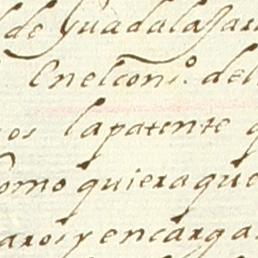 de Guadalaxar
Enelcons.º del
os lapatente q
Como quiera que
aros y encarga